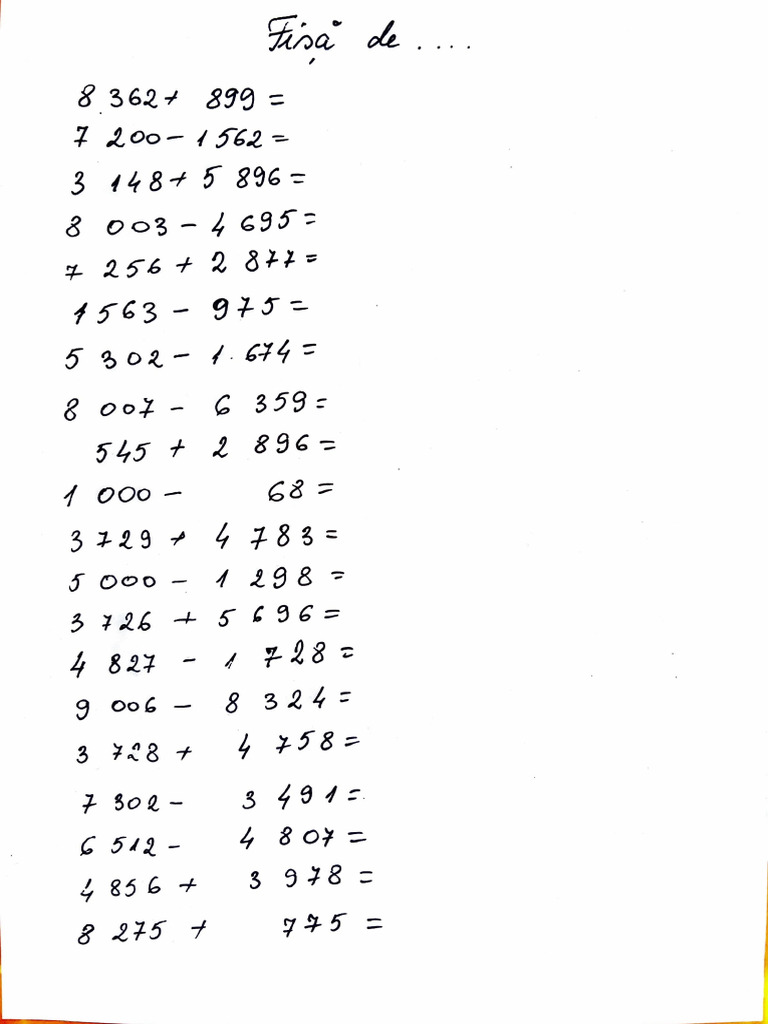 Fișă de ....
8 362 + 899 =
7 200 - 1 562 =
3 148 + 5 896 =
8 003 - 4 695 =
7 256 + 2 877 =
1 563 - 975 =
5 302 - 1.674 =
8 007 - 6 359 =
545 + 2 896 =
1 000 - 68 =
3 729 + 4 783 =
5 000 - 1 298 =
3 726 + 5 696 =
4 827 - 1 728 =
9 006 - 8 324 =
3 728 + 4 758 =
7 302 - 3 491 =
6 512 - 4 807 =
4 856 + 3 978 =
8 275 + 775 =